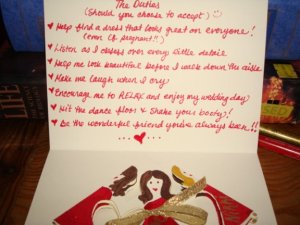 The Duties
(Should you choose to accept) ☺
♥ Help find a dress that looks great on everyone!
(even if pregnant!!)
♥ Listen as I obsess over every little detail
♥ Help me look beautiful before I walk down the aisle
♥ Make me laugh when I cry
♥ Encourage me to RELAX and enjoy my wedding day
♥ Hit the dance floor & shake your booty!
♥ Be the wonderful friend you've always been!!
...♥...